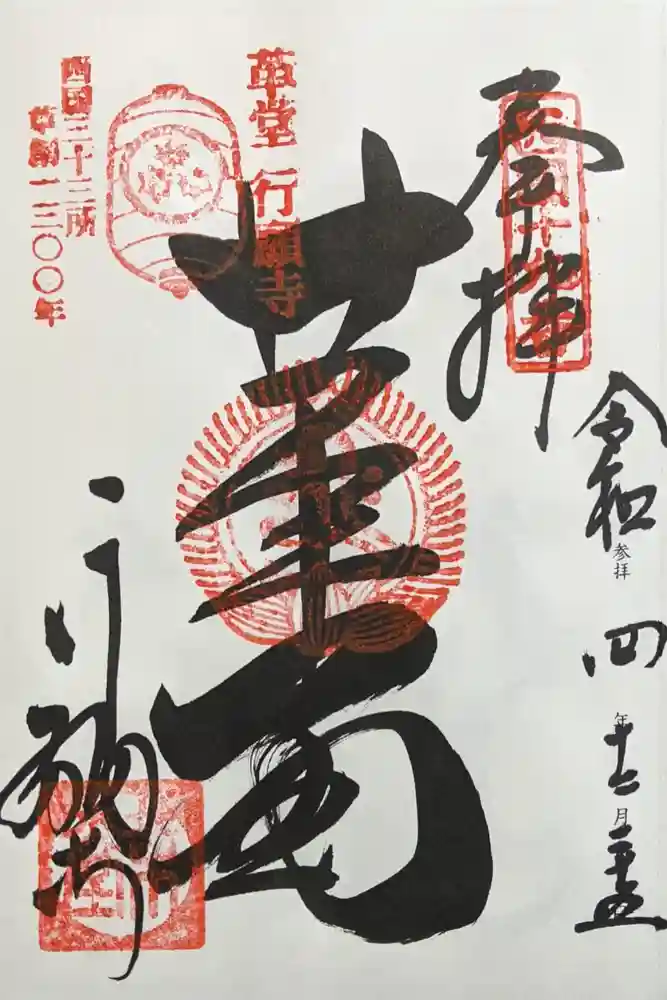 奉拝
西国十九番
令和四年十二月
参拝
革堂 行願寺
革堂
西国三十三所
草創一三〇〇年
行願寺